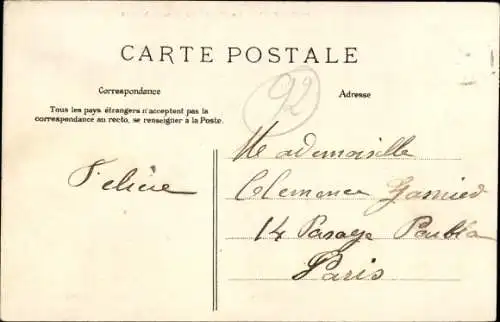 CARTE POSTALE
Correspondance
Tous les pays étrangers n'acceptent pas la
correspondance au recto, se renseigner à la Poste.
Adresse
92
Mademoiselle
Clemence
14 Passage
Paris